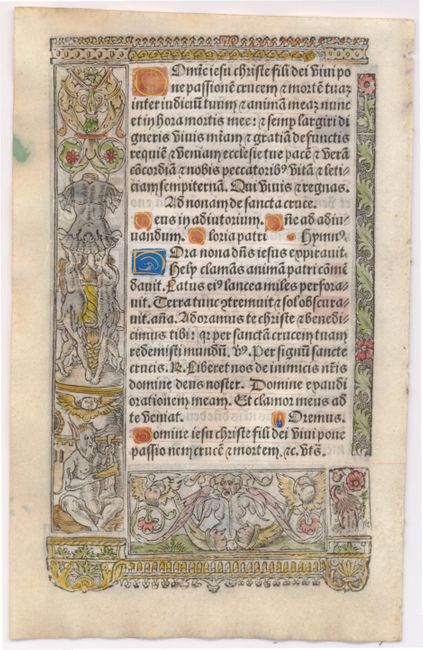 Domie iesu christe fili dei vivi po
ne passionē crucem ⁊ mortē tuaz
inter iudiciū tuum ⁊ animā meaz nunc
et in hora mortis mee: ⁊ semp largiri di
gneris vivis miam ⁊ gratiā defunctis
requiē ⁊ veniam ecclesie tue pacē ⁊ verā
cōcordiā ⁊ nobis peccatorib⁹ vitā ⁊ leti-
ciam sempiternā. Qui vivis ⁊ regnas.
Ad nonam de sancta cruce.
Deus in adiutorium. Dn̄e ad adiu-
uandum. Gloria patri Hymn⁹.
Hora nona dn̄s iesus expiravit
Hely clamās animam patri cōmē
davit. Latus ei⁹ lancea miles perfora-
vit. Terra tunc ꝯtremuit ⁊ sol obscura-
vit. añ̄a. Adoramus te christe ⁊ benedi-
cimus tibi: qꝛ per sanctā crucem tuam
redemisti mundū. v̄⁹. Per signū sancte
crucis. R. Liberet nos de inimicis nr̄is
domine deus noster. Domine exaudi
orationem meam. Et clamor meus ad
te veniat. Oremus.
Domine iesu christe fili dei vivi pone
passionem crucē ⁊ mortem. ⁊c. vt̄s.